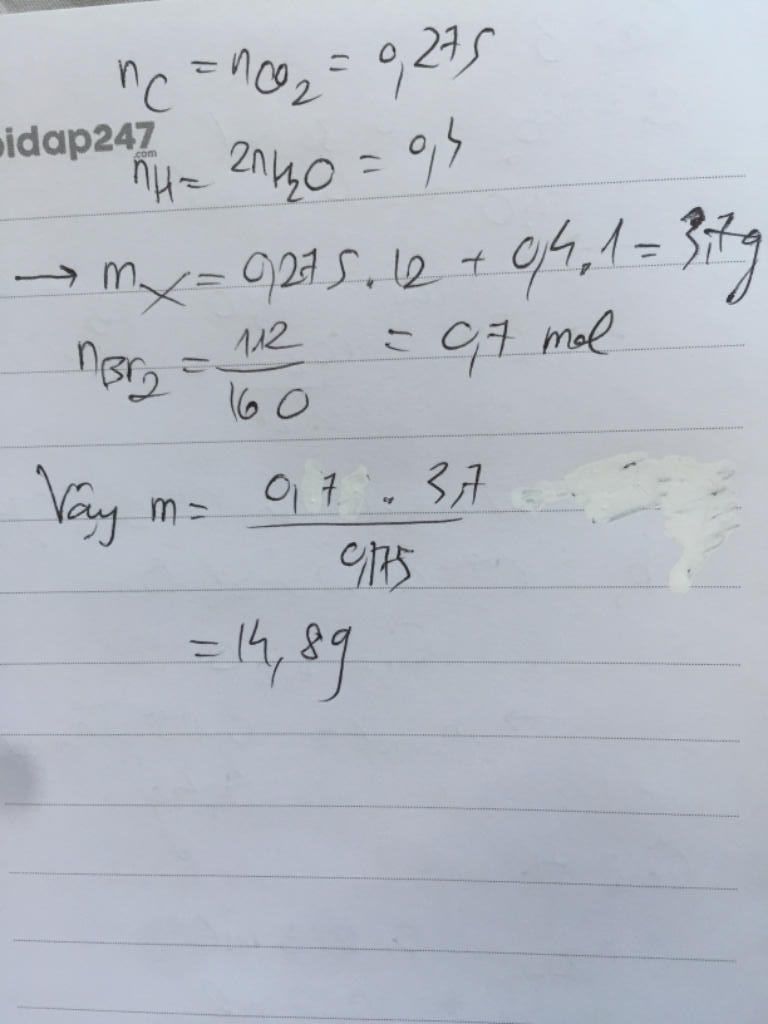 nC = nCO2 = 0,275
oidap247
.com
nH = 2nH2O = 0,4
→ mX = 0,275.12 + 0,4.1 = 3,7g
nBr2 = 112/160 = 0,7 mol
Vậy m = 0,7 . 3,7/0,175
= 14,8g